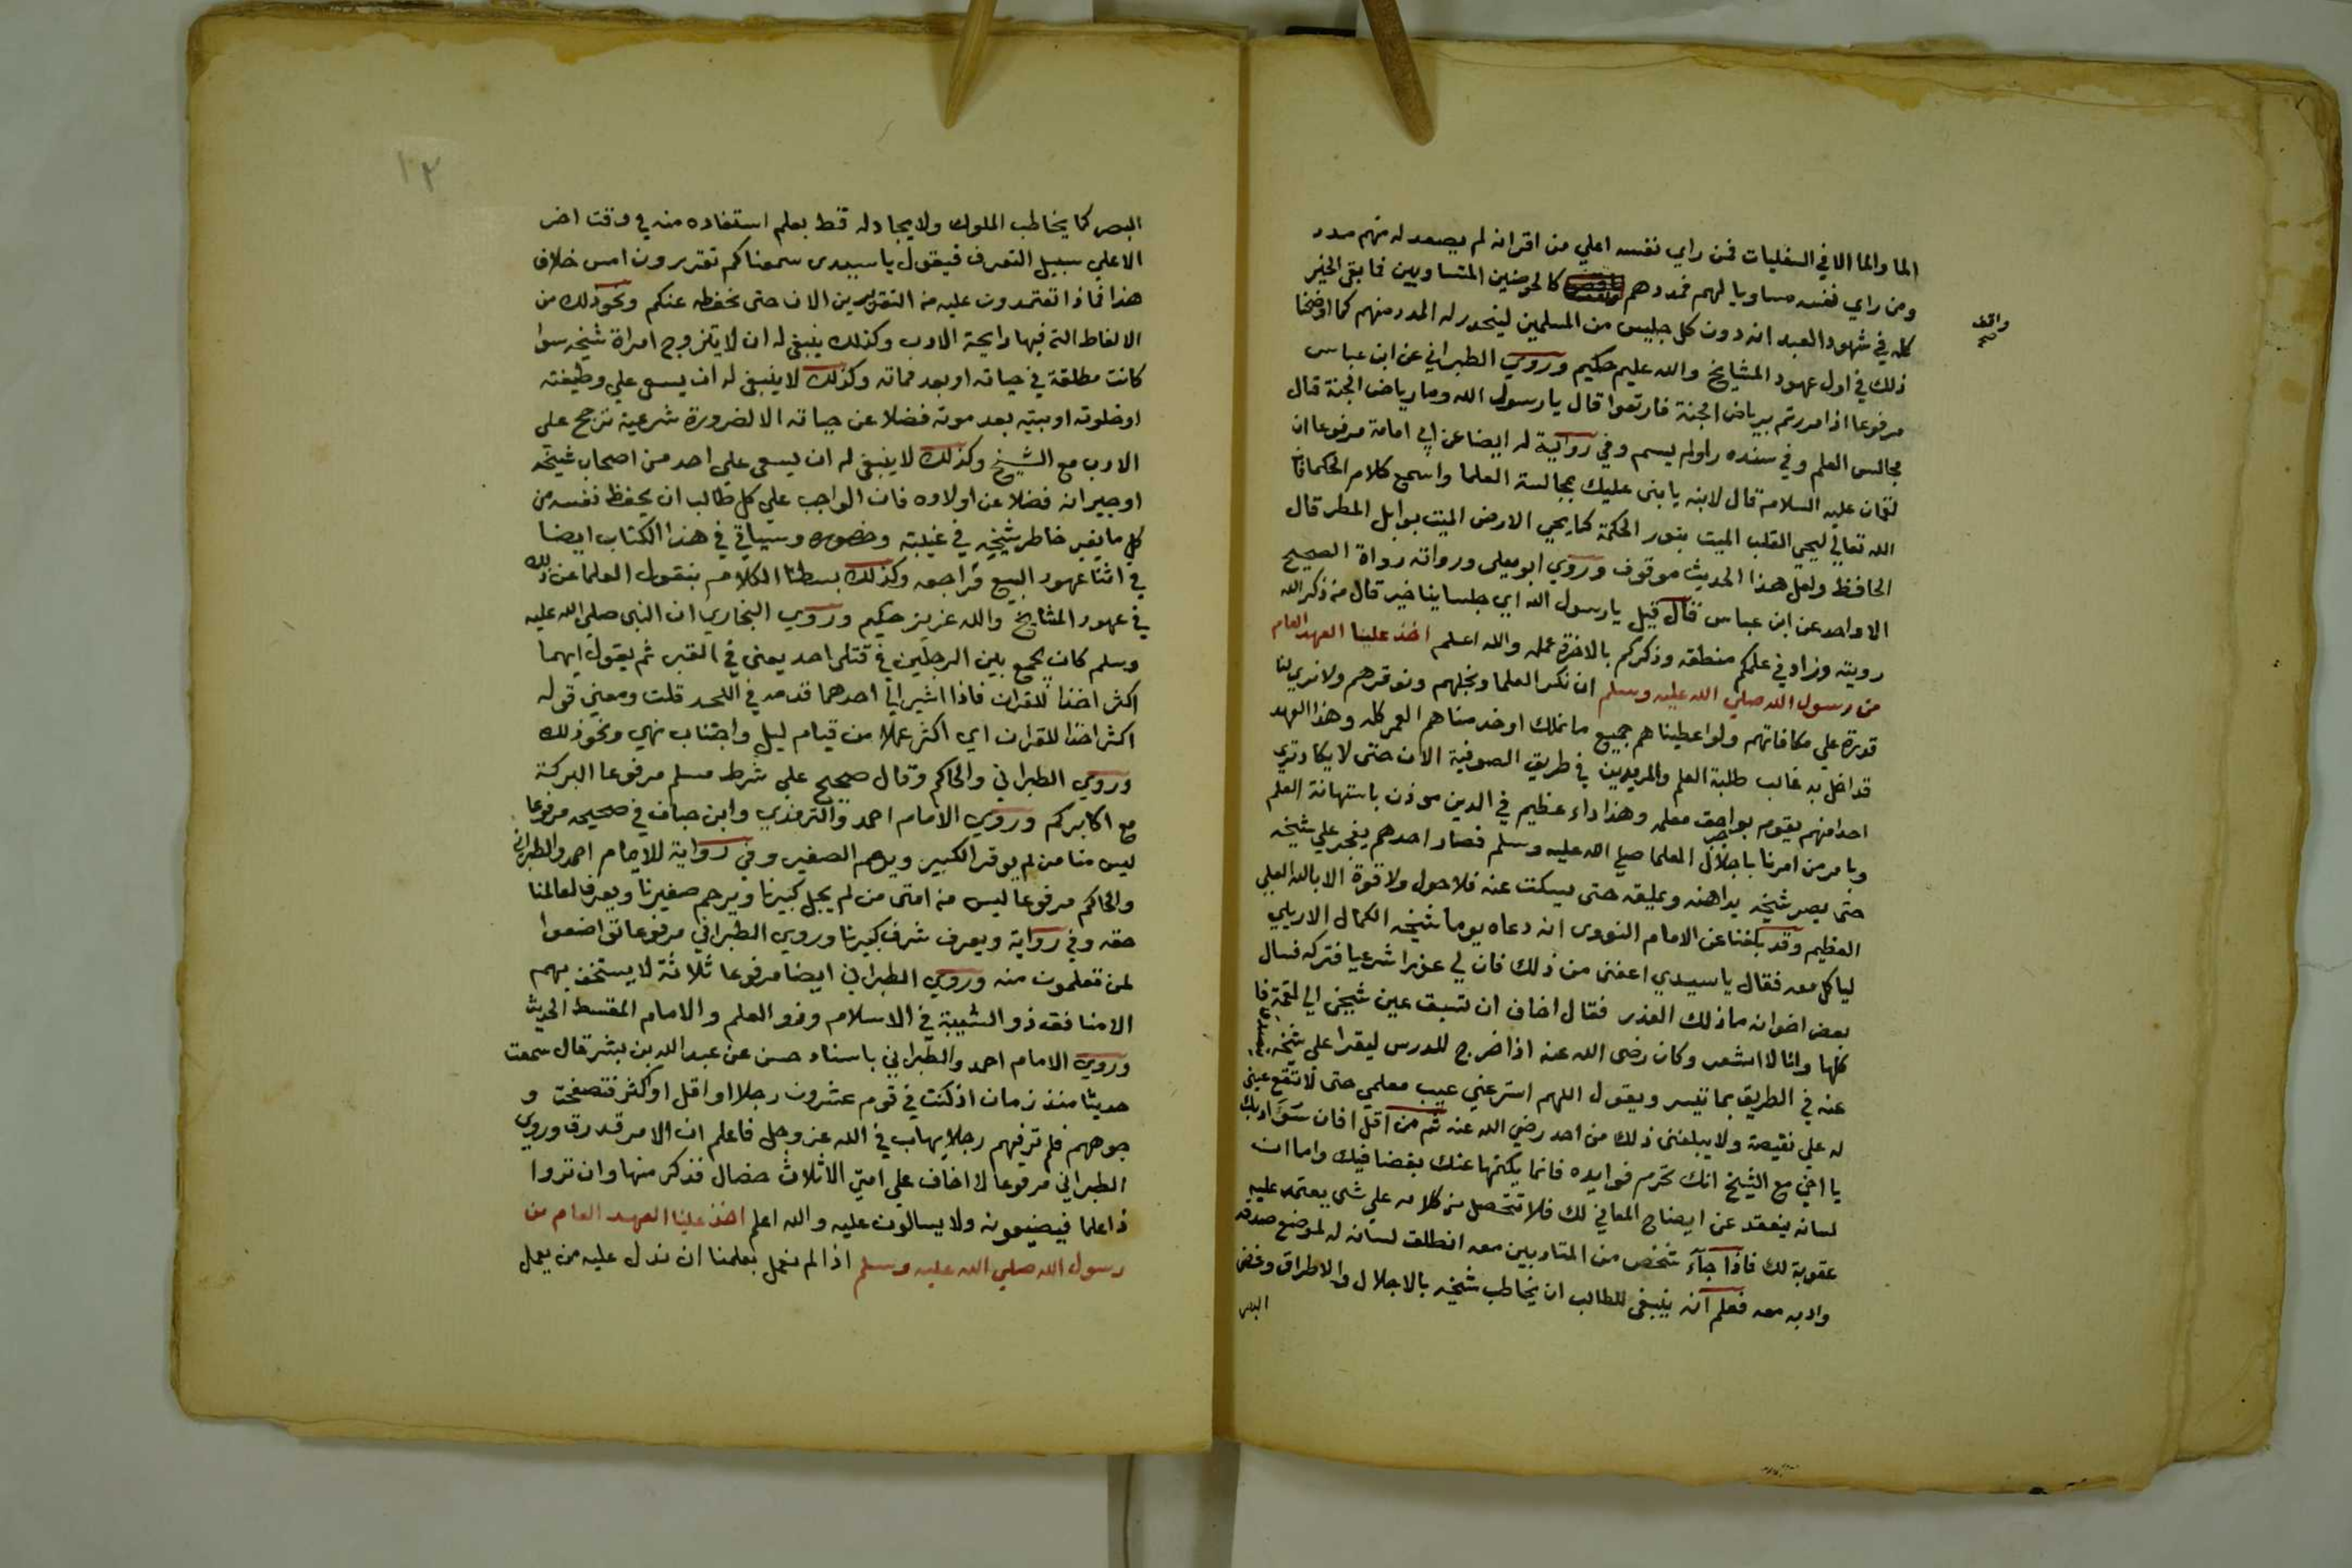 الما والما الا في السفليات فمن راي نفسه اعلي من اقرانه لم يصعد له منهم مدد
ومن راي نفسه مساويا لهم فمددهم كالحوضين المتساويين فما بقي الخير
واقف صح
كله في شهود العبد انه دون كل جليس من المسلمين لينحدر له المدد منهم كما اوضحنا
ذلك في اول عهود المشايخ والله عليم حكيم وروي الطبراني عن ابن عباس
مرفوعا اذا مررتم برياض الجنة فارتعوا قال يا رسول الله وما رياض الجنة قال
مجالس العلم وفي سنده راو لم يسم وفي رواية له ايضا عن ابي امامة مرفوعا ان
لقمان عليه السلام قال لابنه يا بني عليك بمجالسة العلما واسمع كلام الحكما فان
الله تعالي ليحي القلب الميت بنور الحكمة كما يحي الارض الميت بوابل المطر قال
الحافظ ولعل هذا الحديث موقوف وروي ابو يعلى ورواته رواة الصحيح
الا واحد عن ابن عباس قال قيل يا رسول الله اي جلساينا خير قال من ذكركم الله
رويته وزاد في علمكم منطقه وذكركم بالاخرة عمله والله اعلم اخذ علينا العهد العام
من رسول الله صلي الله عليه وسلم ان نكرم العلما ونجلهم ونوقرهم ولا نري لنا
قدرة علي مكافاتهم ولو اعطيناهم جميع ما نملك او خدمناهم العمر كله وهذا العهد
قد اخل به غالب طلبة العلم والمريدين في طريق الصوفية الان حتى لا يكاد تري
احدا منهم يقوم بواجب حق معلمه وهذا داء عظيم في الدين موذن باستهانة العلم
وبامر من امرنا باجلال العلما صلي الله عليه وسلم فصار احدهم يفجر علي شيخه
حتى يصير شيخه يداهنه ويملقه حتى يسكت عنه فلا حول ولا قوة الا بالله العلي
العظيم وقد بلغنا عن الامام النووي انه دعاه يوما شيخه الكمال الاربلي
لياكل معه فقال يا سيدي اعفني من ذلك فان لي عذرا شرعيا فتركه فسال
بعض اخوانه ما ذلك العذر فقال اخاف ان تسبق عين شيخي الي لقمة فا
كلها وانا لا اشعر وكان رضي الله عنه اذا خرج للدرس ليقرا علي شيخه يتصدق
عنه في الطريق بما تيسر ويقول اللهم استر عني عيب معلمي حتى لا تقع عيني
له علي نقيصة ولا يبلغني ذلك من احد رضي الله عنه ثم من اقل افات سو ادبك
يا اخي مع الشيخ انك تحرم فوايده فاما يكتمها عنك بغضا فيك واما ان
لسانه ينعقد عن ايضاح المعاني لك فلا تتحصل من كلامه علي شي يعتمد عليه
عقوبة لك فاذا جاء شخص من المتادبين معه انطلق لسانه له لموضع صدقه
وادبه معه فعلم انه ينبغي للطالب ان يخاطب شيخه بالاجلال والاطراق وغض
البصر
١٢
البصر كما يخاطب الملوك ولا يجادله قط بعلم استفاده منه في وقت اخر
الا علي سبيل التعرف فيقول يا سيدي سمعناكم تقررون امس خلاف
هذا فماذا تعتمدون عليه من التقريرين الان حتى نحفظه عنكم ونحو ذلك من
الالفاظ التي فيها رايحة الادب وكذلك ينبغي له ان لا يتزوج امراة شيخه سوا
كانت مطلقة في حياته او بعد مماته وكذلك لا ينبغي له ان يسعى علي وظيفته
او خلوته او بيته بعد موته فضلا عن حياته الا لضرورة شرعية ترجح على
الادب مع الشيخ وكذلك لا ينبغي له ان يسعى علي احد من اصحاب شيخه
او جيرانه فضلا عن اولاده فان الواجب علي كل طالب ان يحفظ نفسه من
كل ما يغير خاطر شيخه في غيبته وحضوره وسياتي في هذا الكتاب ايضا
في اثنا عهود البيع فراجعه وكذلك بسطنا الكلام بنقول العلما عن ذلك
في عهود المشايخ والله عزيز حكيم وروي البخاري ان النبي صلي الله عليه
وسلم كان يجمع بين الرجلين في قتلى احد يعني في القبر ثم يقول ايهما
اكثر اخذا للقران فاذا اشير الي احدهما قدمه في اللحد قلت ومعني قوله
اكثر اخذا للقران اي اكثر عملا من قيام ليل واجتناب نهي ونحو ذلك
وروي الطبراني والحاكم وقال صحيح علي شرط مسلم مرفوعا البركة
مع اكابركم وروي الامام احمد والترمذي وابن حبان في صحيحه مرفوعا
ليس منا من لم يوقر الكبير ويرحم الصغير وفي رواية للامام احمد والطبراني
والحاكم مرفوعا ليس من امتى من لم يجل كبيرنا ويرحم صغيرنا ويعرف لعالمنا
حقه وفي رواية ويعرف شرف كبيرنا وروي الطبراني مرفوعا تواضعوا
لمن تعلمون منه وروي الطبراني ايضا مرفوعا ثلاثة لا يستخف بهم
الا منافق ذو الشيبة في الاسلام وذو العلم والامام المقسط الحديث
وروي الامام احمد والطبراني باسناد حسن عن عبد الله بن بشر قال سمعت
حديثا منذ زمان اذ كنت في قوم عشرون رجلا او اقل او اكثر فتصفحت و
جوههم فلم تر فيهم رجلا يهاب في الله عز وجل فاعلم ان الامر قد رق وروي
الطبراني مرفوعا لا اخاف علي امتي الا ثلاث خصال فذكر منها وان تروا
ذا علما فيضيعونه ولا يسالون عليه والله اعلم اخذ علينا العهد العام من
رسول الله صلي الله عليه وسلم اذا لم نعمل بعلمنا ان ندل عليه من يعمل